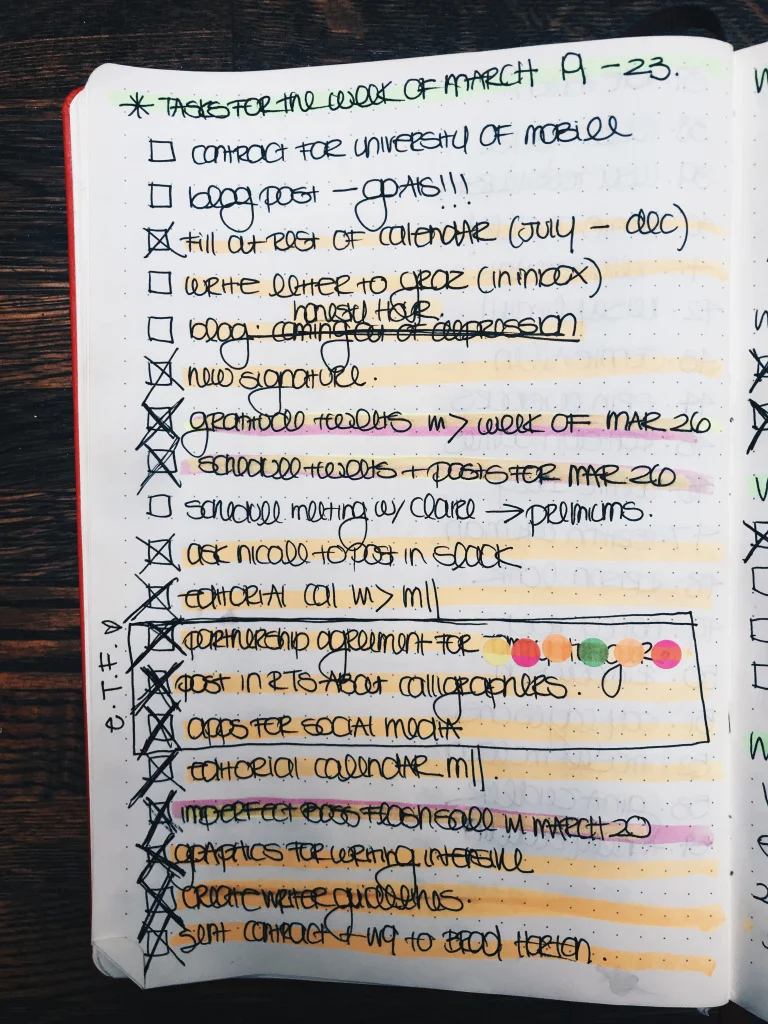 * TASKS FOR the week OF MARCH 19 - 23.
contract for university of mobile
blog post - goals!!!
fill out rest of calendar (July - dec)
write letter to graz (in inbox)
honesty hour.
blog: coming out of depression
new signature.
graphics tweets m> week OF MAR 26
schedule tweets + posts for MAR 26
schedule meeting w/ Claire → premiums.
ask nicole to post in slack
editorial cal m> m||
e.T.F. ♡
partnership agreement for
post in RTS about calligraphers.
apps for social media
editorial calendar m||.
imperfect boss flash sale m MARCH 20
graphics for writing intensive
create writer guidelines.
sent contract + w9 to Brad Horton.